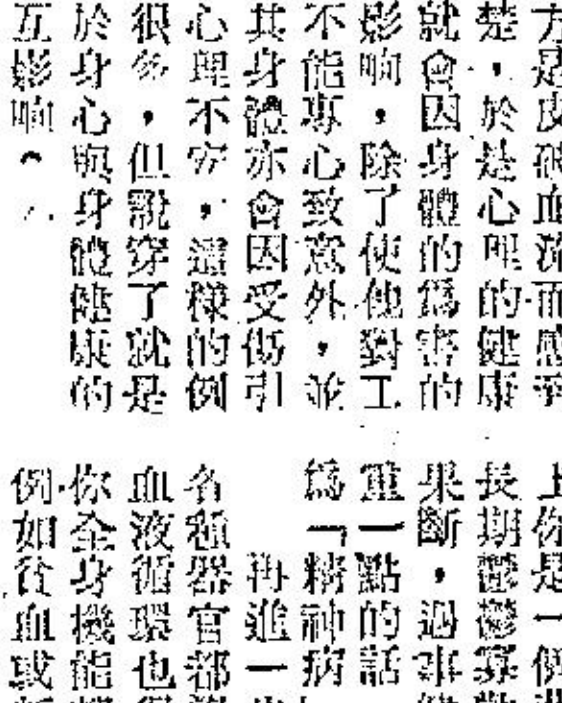 方是皮破血流而感到
楚,於是心理的健康
就會因身體的傷害的
影响,除了使他對工
不能專心致意外,並
其身體亦會因受傷引
心理不安,這樣的例
很多,但說穿了就是
於身心與身體健康的
互影响。
上你是一個
長期鬱鬱寡歡
果斷,過事
重一點的話
爲「精神病
再進一
各種器官都
血液循環也
你全身機能
例如貧血或